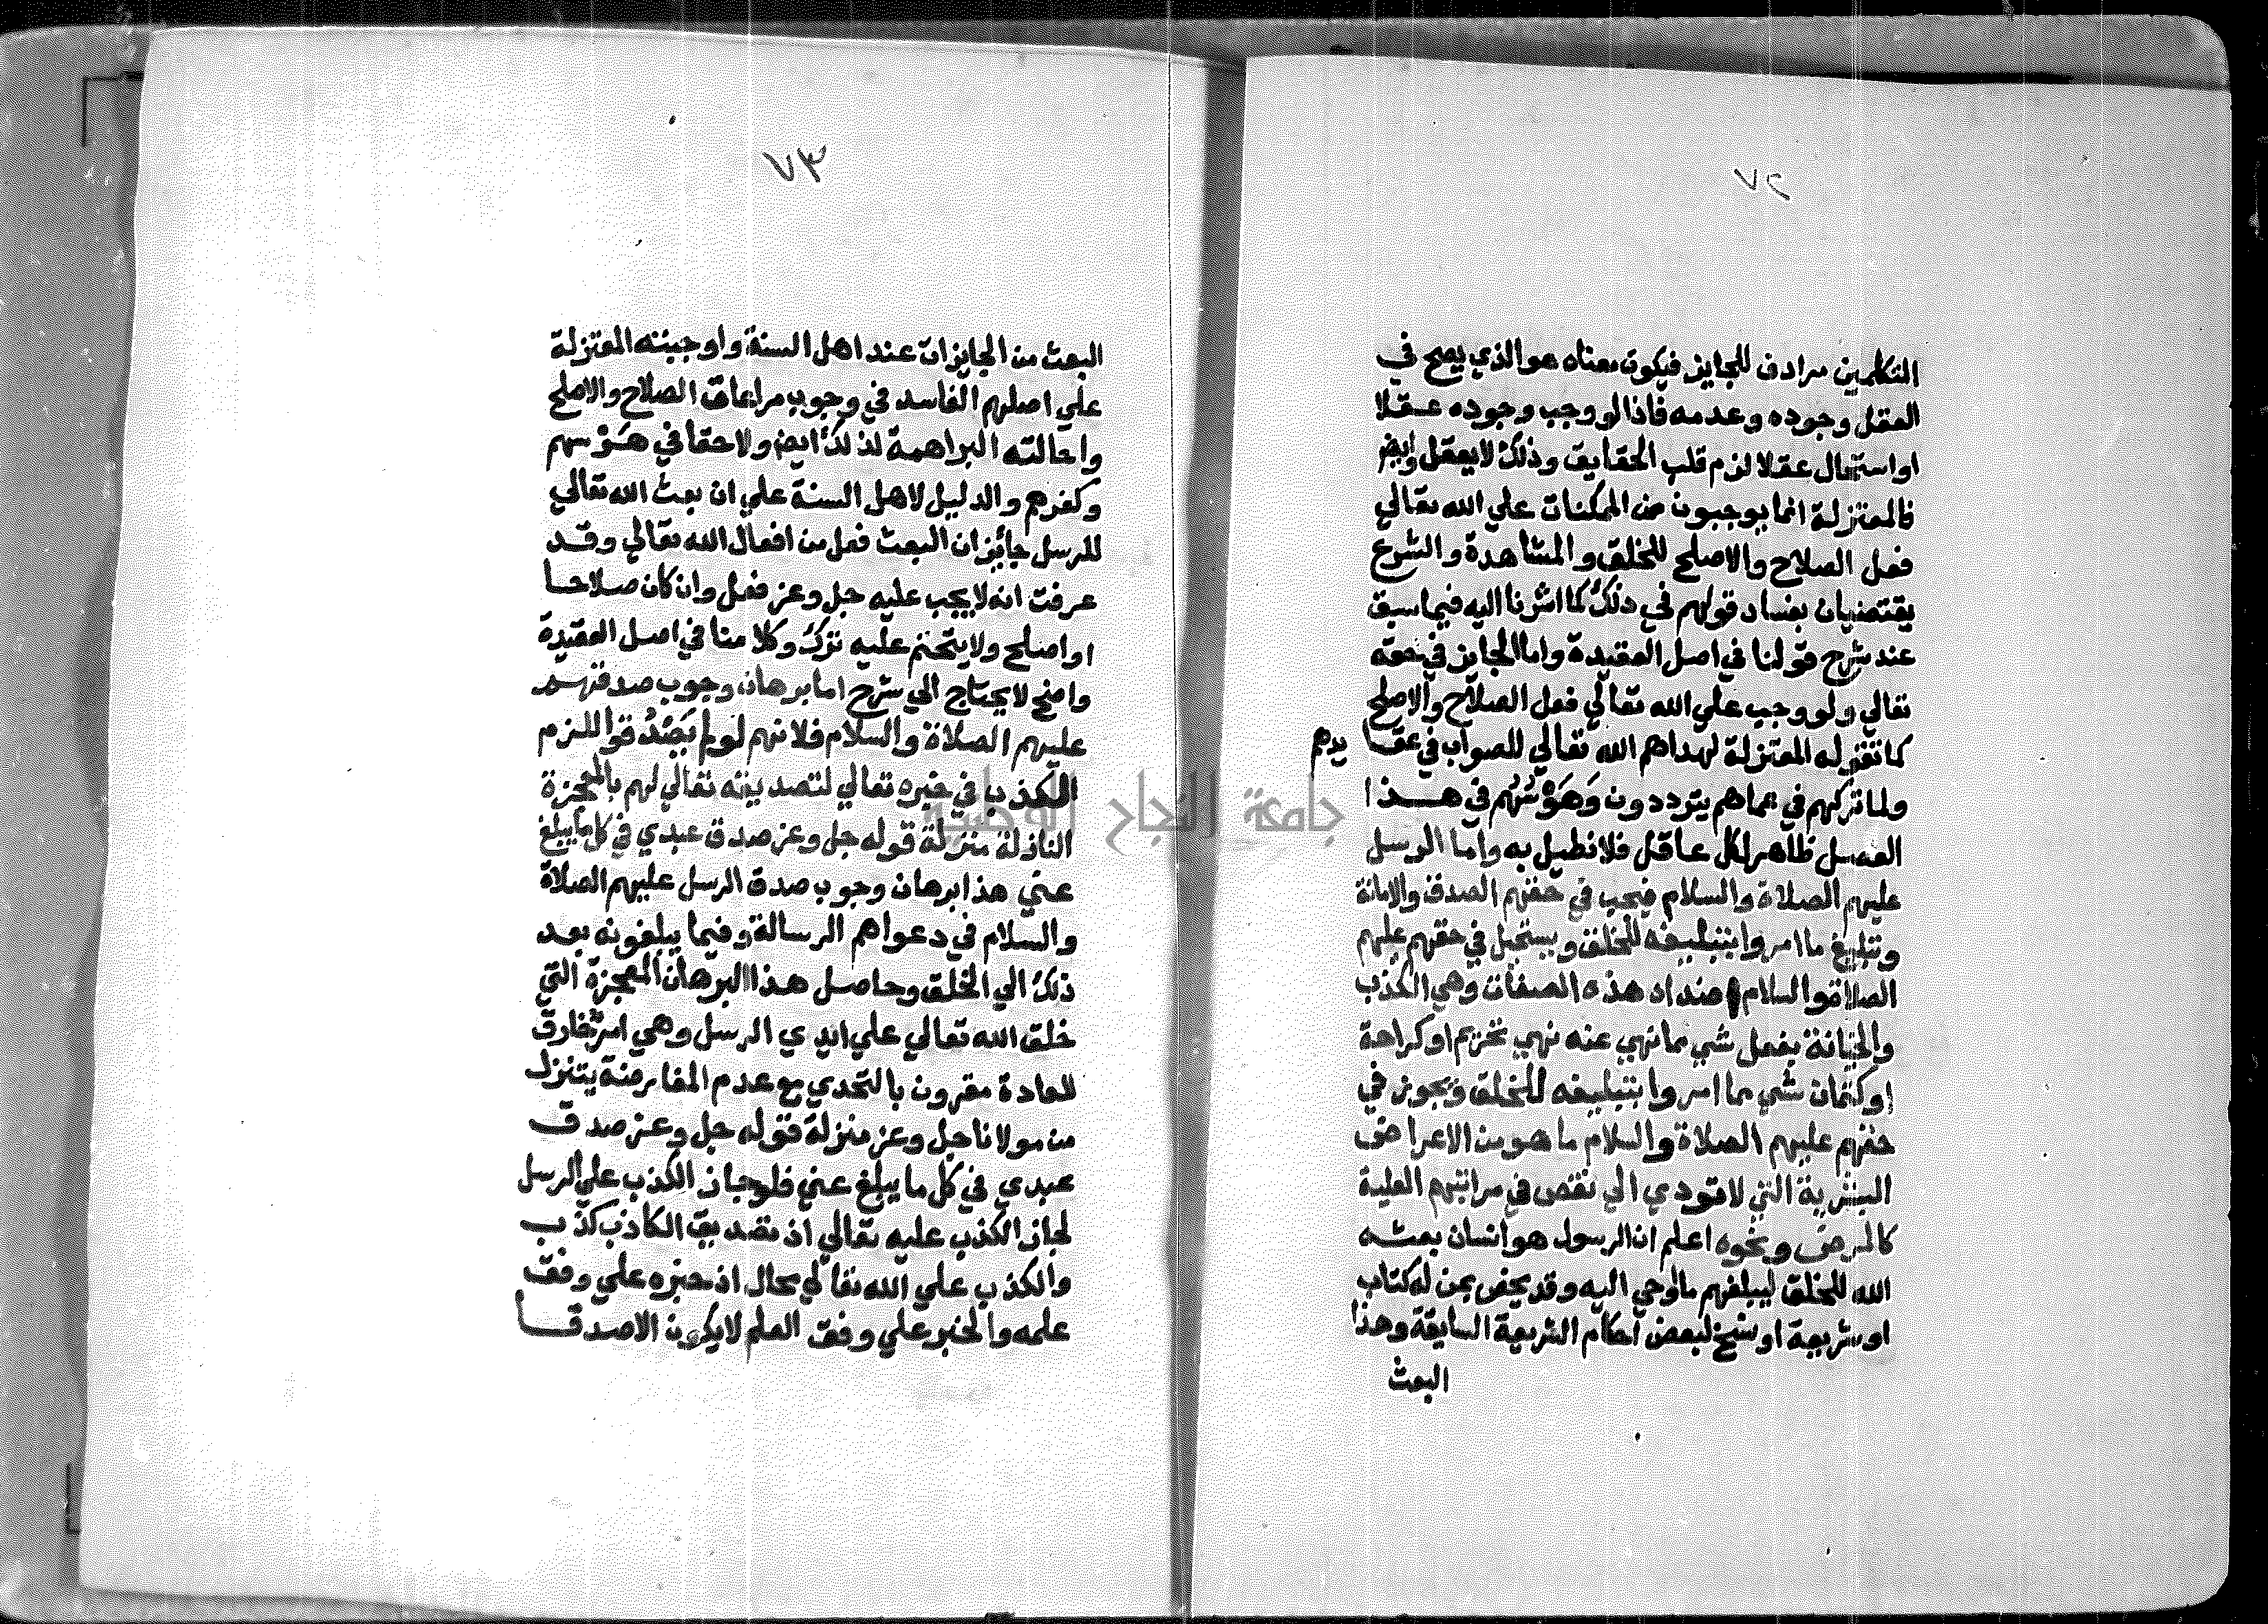 ٧٢
المتكلمين مرادف للجايز فيكون معناه هو الذي يصح في
العقل وجوده وعدمه فاذا لو وجب وجوده عقلا
او استحال عقلا لزم قلب الحقايق وذلك لا يعقل وايض
فالمعتزلة انما يوجبون من الممكنات علي الله تعالي
فعل الصلاح والاصلح للخلق والمشاهدة والشرع
يقتضيان بفساد قولهم في ذلك كما اشرنا اليه فيما سبق
عند شرح قولنا في اصل العقيدة واما الجايز في حقه
تعالي ولو وجب علي الله تعالي فعل الصلاح والاصلح
كما تقوله المعتزلة لهداهم الله تعالي للصواب في عقا يدهم
ولما تركهم في عماهم يترددون وهوسهم في هذا
الفصل ظاهر لكل عاقل فلا نطيل به واما الرسل
عليهم الصلاة والسلام فيجب في حقهم الصدق والامانة
وتبليغ ما امروا بتبليغه للخلق ويستحيل في حقهم عليهم
الصلاة والسلام اضداد هذه الصفات وهي الكذب
والخيانة بفعل شي مما نهي عنه نهي تحريم او كراهة
او كتمان شي مما امروا بتبليغه للخلق ويجوز في
حقهم عليهم الصلاة والسلام ما هو من الاعراض
البشرية التي لا تودي الي نقص في مراتبهم العلية
كالمرض ونحوه اعلم ان الرسول هو انسان بعثه
الله للخلق ليبلغهم ما اوحي اليه وقد يخص بمن له كتاب
او شريعة او نسخ لبعض احكام الشريعة السابقة وهذا
البعث
٧٣
البعث من الجايزات عند اهل السنة واوجبته المعتزلة
علي اصلهم الفاسد في وجوب مراعات الصلاح والاصلح
واحالته البراهمة لذلك ايض ولا خفا في هوسهم
وكفرهم والدليل لاهل السنة علي ان بعث الله تعالي
للرسل جائز ان البعث فعل من افعال الله تعالي وقد
عرفت انه لا يجب عليه جل وعز فعل وان كان صلاحا
او اصلح ولا يتحتم عليه ترك وكلامنا في اصل العقيدة
واضح لا يحتاج الي شرح اما برهان وجوب صدقهم
عليهم الصلاة والسلام فلانهم لو لم يصدقوا للزم
الكذب في خبره تعالي لتصديقه تعالي لهم بالمعجزة
النازلة منزلة قوله جل وعز صدق عبدي في كل ما يبلغ
عني هذا برهان وجوب صدق الرسل عليهم الصلاة
والسلام في دعواهم الرسالة وفيما يبلغونه بعد
ذلك الي الخلق وحاصل هذا البرهان المعجزة التي
خلق الله تعالي علي ايدي الرسل وهي امر خارق
للعادة مقرون بالتحدي مع عدم المعارضة يتنزل
من مولانا جل وعز منزلة قوله جل وعز صدق
عبدي في كل ما يبلغ عني فلو جاز الكذب علي الرسل
لجاز الكذب عليه تعالي اذ تصديق الكاذب كذب
والكذب علي الله تعالي محال اذ خبره علي وفق
علمه والخبر علي وفق العلم لا يكون الا صدقا
جامعة النجاح الوطنية